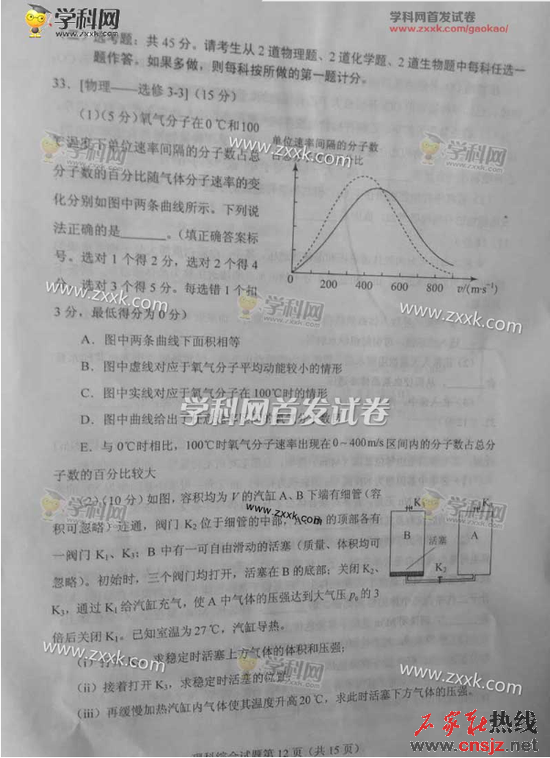 学科网
www.zxxk.com
学科网首发试卷
www.zxxk.com/gaokao/
选考题：共45分。请考生从2道物理题、2道化学题、2道生物题中每科任选一
题作答。如果多做，则每科按所做的第一题计分。
33．[物理——选修3-3]（15分）
（1）（5分）氧气分子在0℃和100
℃温度下单位速率间隔的分子数占总
分子数的百分比随气体分子速率的变
化分别如图中两条曲线所示。下列说
法正确的是______。（填正确答案标
号。选对1个得2分，选对2个得4
分，选对3个得5分。每选错1个扣
3分，最低得分为0分）
单位速率间隔的分子数
比
0 200 400 600 800 v/(m·s⁻¹)
A．图中两条曲线下面积相等
B．图中虚线对应于氧气分子平均动能较小的情形
C．图中实线对应于氧气分子在100℃时的情形
D．图中曲线给出了
E．与0℃时相比，100℃时氧气分子速率出现在0~400m/s区间内的分子数占总分
子数的百分比较大
学科网首发试卷
（2）（10分）如图，容积均为V的汽缸A、B下端有细管（容
积可忽略）连通，阀门K₂位于细管的中部，A、B的顶部各有
一阀门K₁、K₃；B中有一可自由滑动的活塞（质量、体积均可
忽略）。初始时，三个阀门均打开，活塞在B的底部；关闭K₂、
K₃，通过K₁给汽缸充气，使A中气体的压强达到大气压p₀的3
倍后关闭K₁。已知室温为27℃，汽缸导热。
B
A
活塞
K₂
（i）
求稳定时活塞上方气体的体积和压强；
（ii）接着打开K₃，求稳定时活塞的位置；
（iii）再缓慢加热汽缸内气体使其温度升高20℃，求此时活塞下方气体的压强。
理科综合试题第12页（共15页）
学科网
www.zxxk.com
石家庄热线
www.cnsjz.net